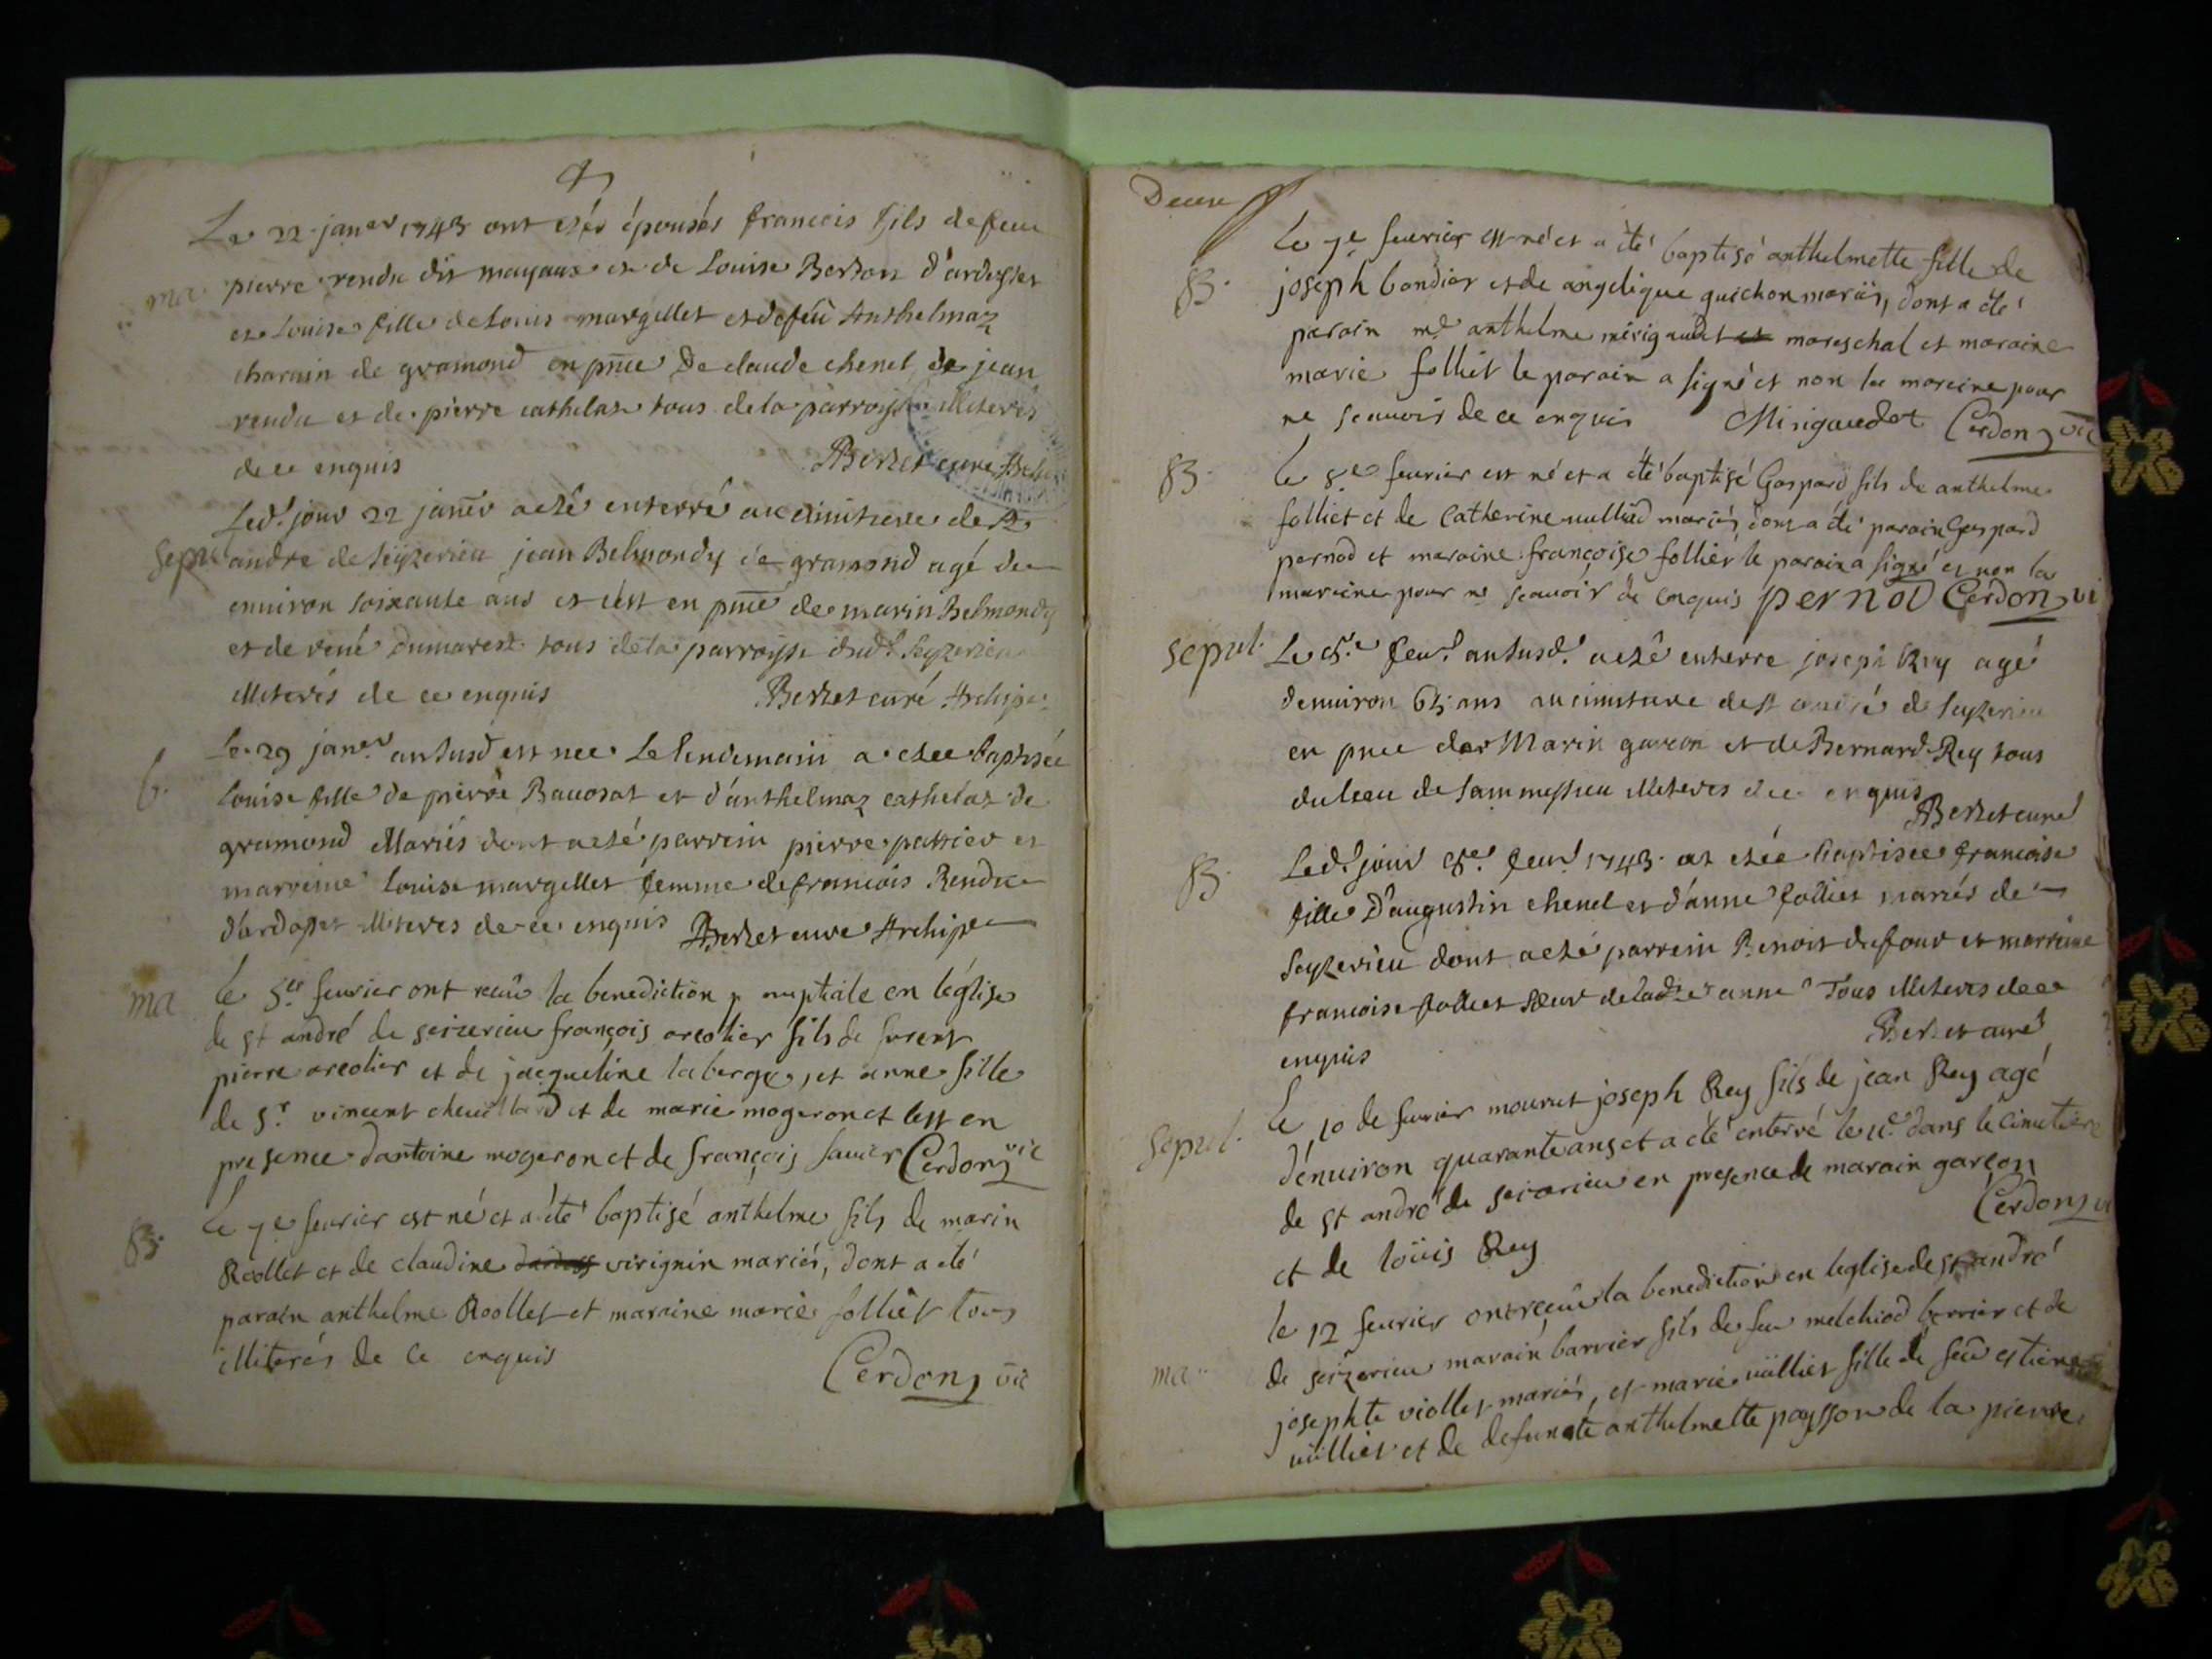 Le 22 janer 1743 ont estés épousés francois fils de feu
ma pierre rendu dit mayaux et de Louise Berson d'ardosset
et Louise fille de Louis margellet et de feü Anthelmaz
charuin de gramond en pnce De claude chenel de jean
rendu et de pierre cathelaz tous de la parroisse illiterés
de ce enquis Berzet curé
Led. jour 22 janer a esté enterré au cimitiere de st
Sepul andre de Seyzerieu jean Belmondy de gramond agé de
enuiron soixante ans et c'est en pnce de marin Belmondy
et de rené Dumarest tous de la parroisse dud. Seyzerieu
illiterés de ce enquis Berzet curé Archipr
b. Le 29 janer an susd est nee Le lendemain a estee baptisée
Louise fille de pierre Bauosat et d'anthelmaz cathelaz de
gramond Mariés dont a esté parrein pierre pattier et
marreine Louise margellet femme de francois Rendu
d'ardosset illiteres de ce enquis Berzet curé Archipr
ma le 5er feurier ont receû la benediction nuptiale en l'église
de st andré de seizerieu françois areolier fils de
pierre areolier et de jacqueline laberge, et anne fille
de Sr vincent cheuillard et de marie mogeron et c'est en
presence d'antoine mogeron et de françois sauier Cerdon vic
B. Le 7e feurier est né et a été baptisé anthelme fils de marin
Roollet et de claudine virignin mariés, dont a été
parain anthelme Roollet et maraine marie folliet tous
illiterés de ce enquis Cerdon vic
Le 7e feurier est né et a été baptisé anthelmette fille de
B. joseph bondier et de angelique guichon mariés, dont a été
parain me anthelme mirigaudet et mareschal et maraine
marie folliet le parain a signé et non la maraine pour
ne scauoir de ce enquis Mirigaudet Cerdon vic
B. le 8e feurier est né et a été baptisé Gaspard fils de anthelme
folliet et de Catherine mariés, dont a été parain Gaspard
pernod et maraine françoise folliet le parain a signé et non la
maraine pour ne scauoir de enquis pernod Cerdon vi
sepul. Le 8.e feur. an susd. a esté enterre joseph Rey agé
d'enuiron 65 ans au cimitiere de st andré de Seyzerieu
en pnce de Marin garcon et de Bernard Rey tous
du lieu de illiteres de ce enquis
Berzet curé
B. Led. jour 8.e feur 1743 est estée baptisée francoise
fille D'augustin chenel et d'anne folliet mariés de
Seyzerieu dont a esté parrein Benoit dufour et marreine
francoise folliet soeur de ladte anne Tous illiteres de ce
enquis Berzet curé
Sepul. Le 10 de feurier mourut joseph Rey fils de jean Rey agé
d'enuiron quarante ans et a été enterré le 11e dans le cimetiere
de st andré de seizerieu en presence de marain garçon
et de loüis Rey Cerdon vi
le 12 feurier ont receu la benediction en leglise de st andré
ma de seizerieu marain barrier fils de feu melchiod berrier et de
josephte viollet mariés, et marie uülliet fille de feû estiene
uülliet et de defuncte anthelmette paysson de la pierre